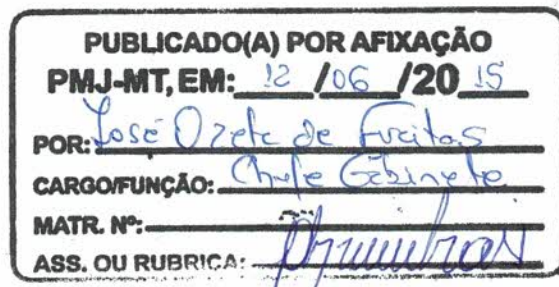 PUBLICADO(A) POR AFIXAÇÃO
PMJ-MT, EM: 12 /06 /20 15
POR: José Ozete de Freitas
CARGO/FUNÇÃO: Chefe Gabinete
MATR. Nº:
ASS. OU RUBRICA: